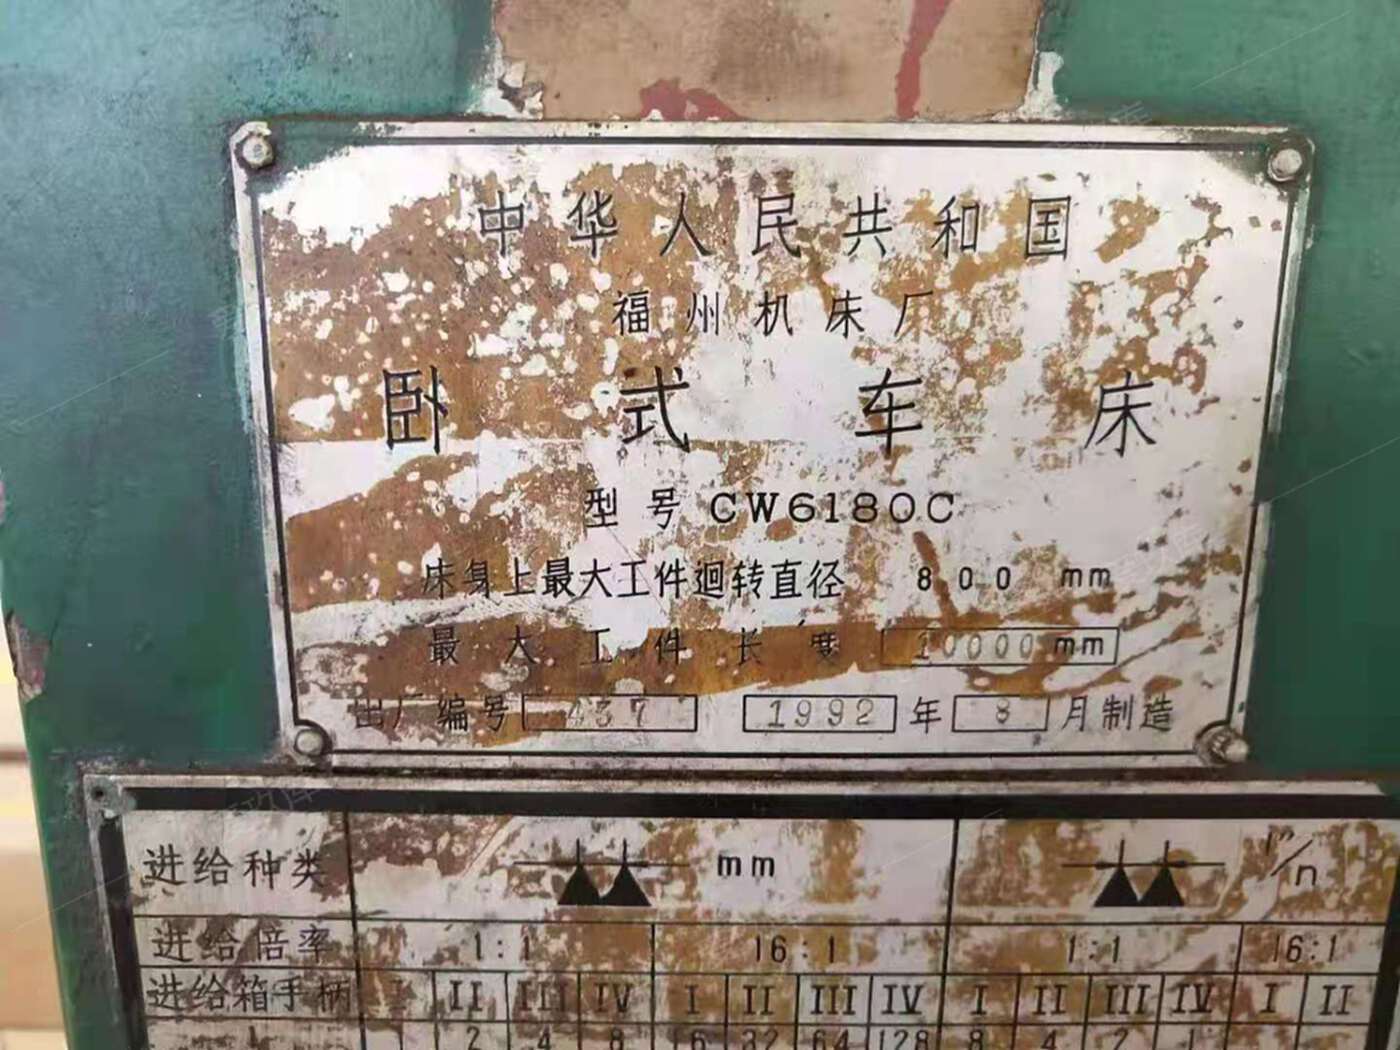 中华人民共和国
福州机床厂
卧式车床
型号 CW6180C
床身上最大工件迴转直径 800 mm
最大工件长度 10000 mm
出厂编号 437 1992 年 8 月制造
进给种类 mm 1"/n
进给倍率 1:1 16:1 1:1 16:1
进给箱手柄 I II III IV I II III IV I II III IV I II
1 2 4 8 16 32 64 128 8 4 2 1